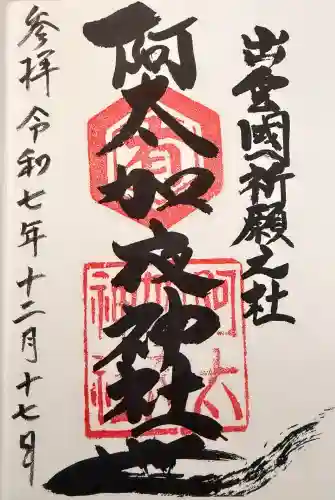 出雲國祈願之社
阿太加夜神社
参拝 令和七年十二月十七日
有
阿太
加夜
神社